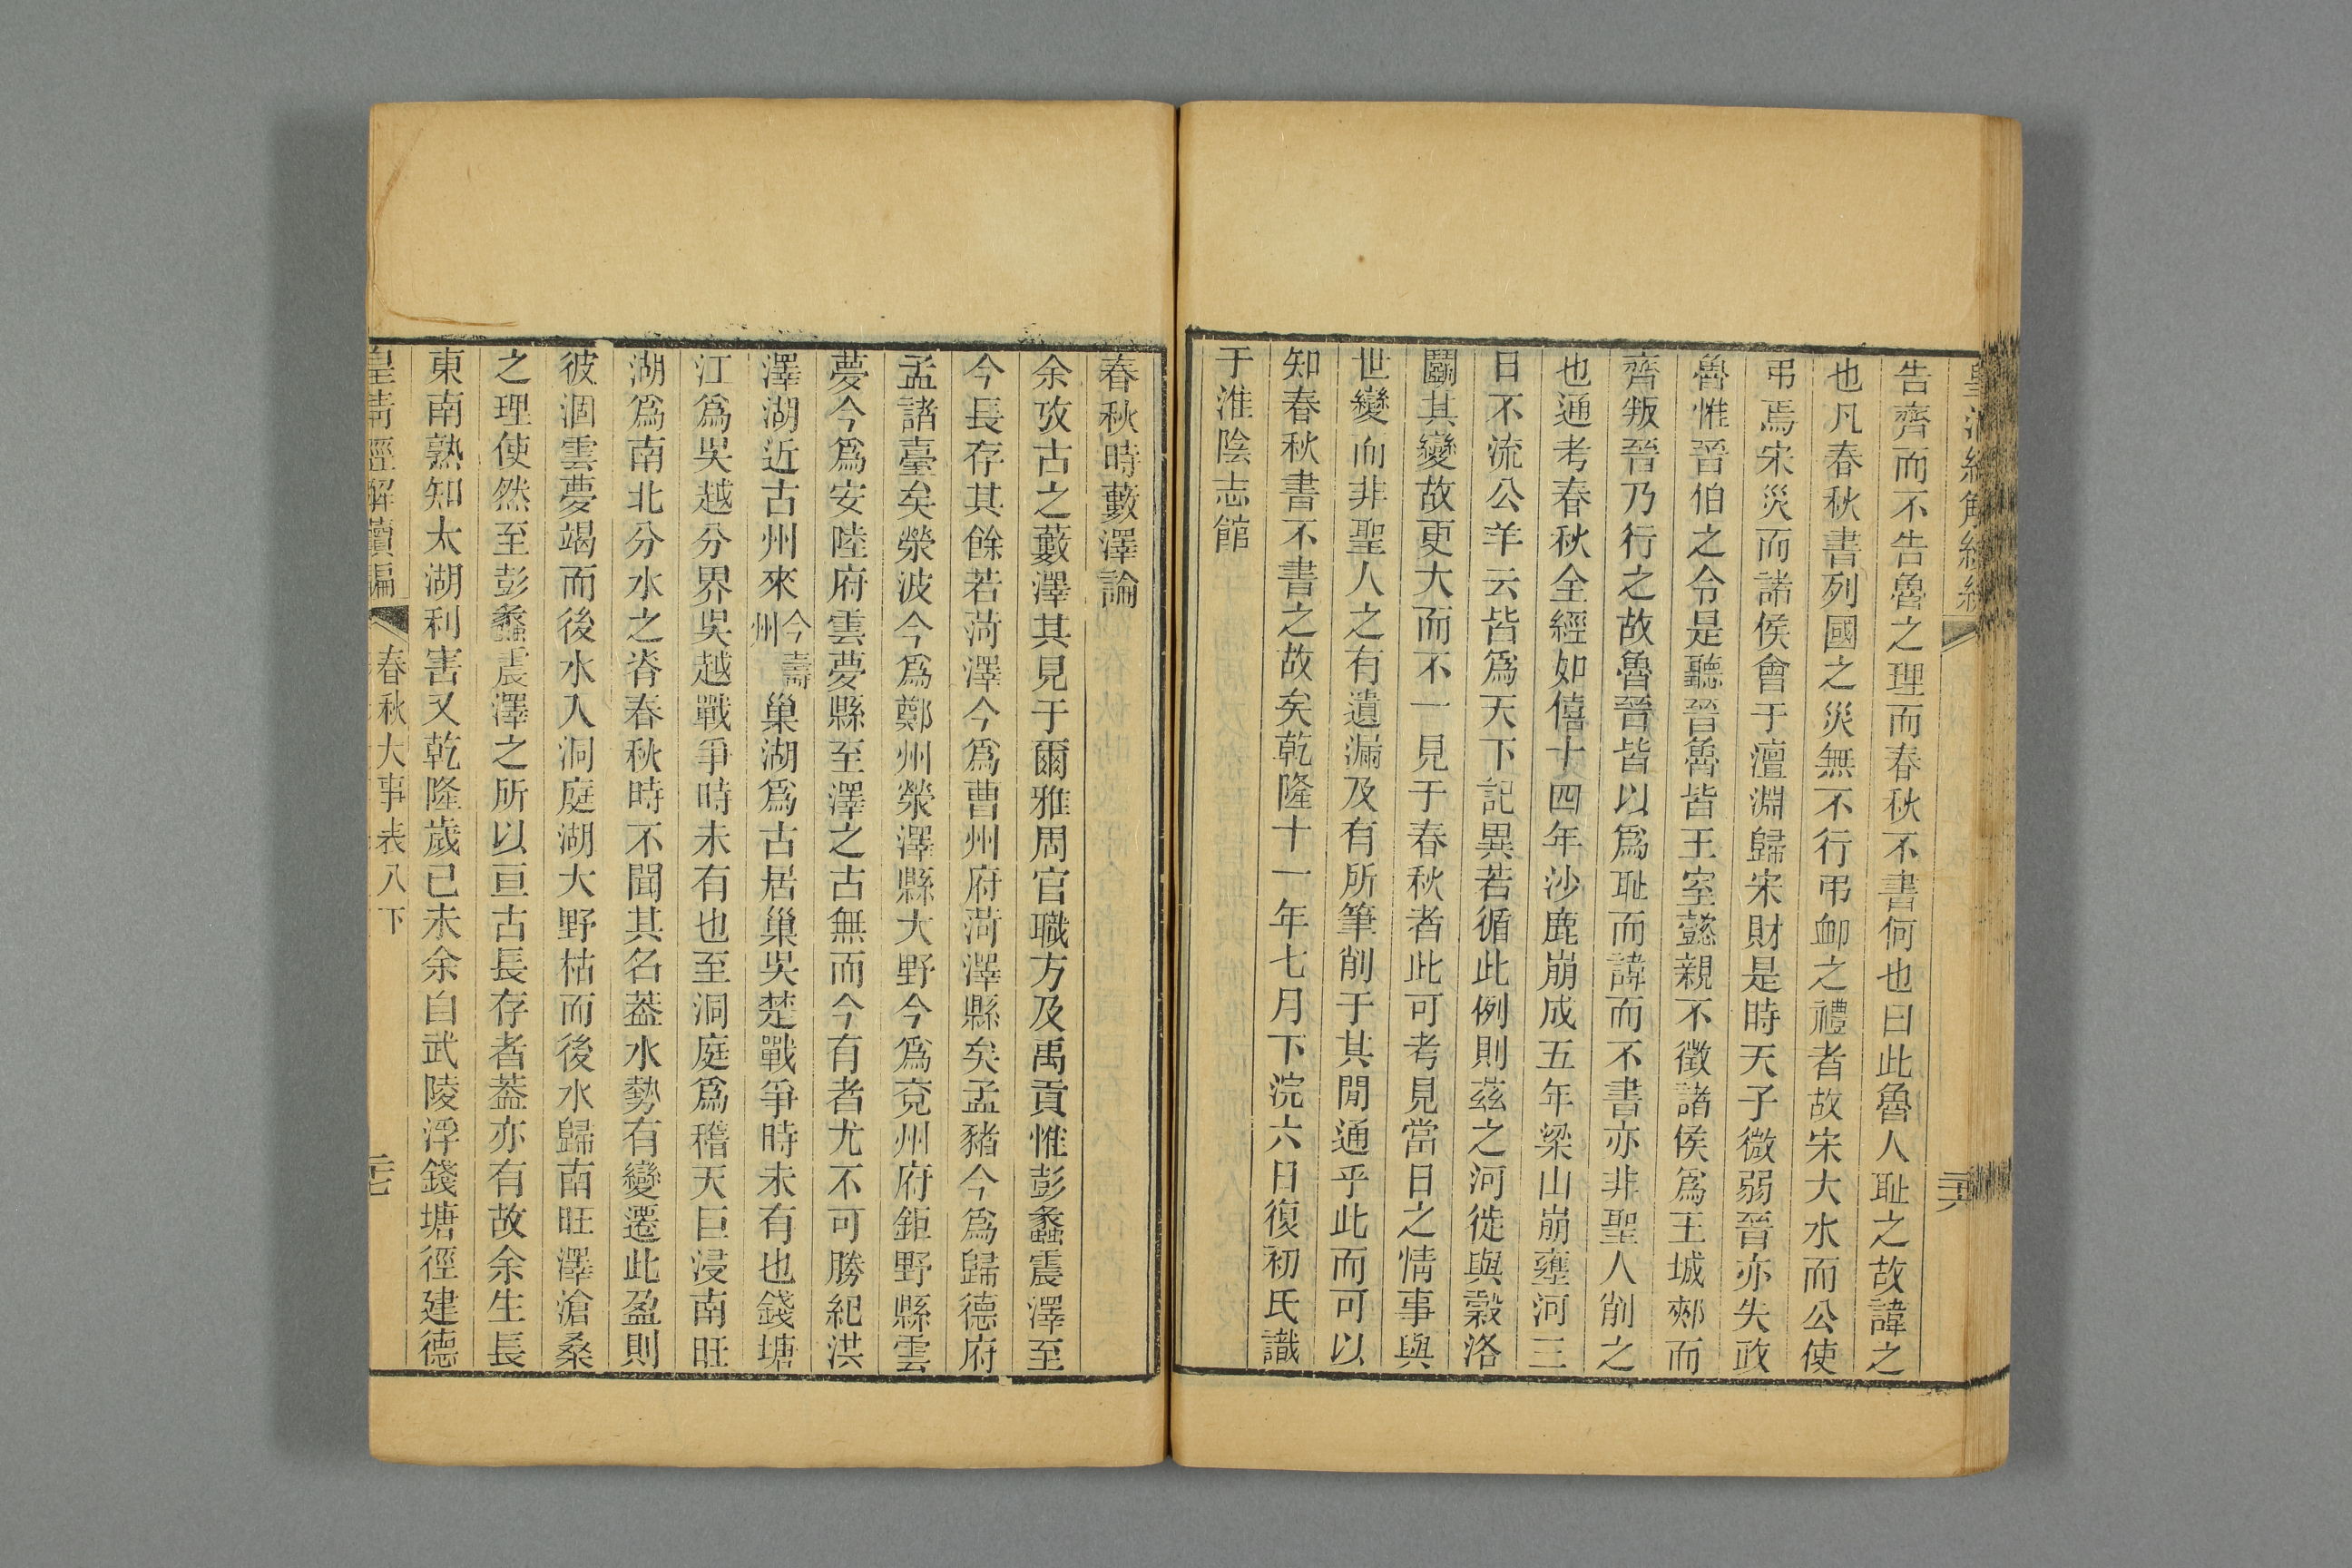 告齊而不告魯之理而春秋不書何也曰此魯人恥之故諱之
也凡春秋書列國之災無不行弔卹之禮者故宋大水而公使
弔焉宋災而諸侯會于澶淵歸宋財是時天子微弱晉亦失政
魯惟晉伯之令是聽晉魯皆王室懿親不徵諸侯爲王城郟而
齊叛晉乃行之故魯晉皆以爲恥而諱而不書亦非聖人削之
也通考春秋全經如僖十四年沙鹿崩成五年梁山崩壅河三
日不流公羊云皆爲天下記異若循此例則茲之河徙與穀洛
鬭其變故更大而不一見于春秋者此可考見當日之情事與
世變而非聖人之有遺漏及有所筆削于其閒通乎此而可以
知春秋書不書之故矣乾隆十一年七月下浣六日復初氏識
于淮陰志館
二十六
春秋時藪澤論
余攷古之藪澤其見于爾雅周官職方及禹貢惟彭蠡震澤至
今長存其餘若菏澤今爲曹州府菏澤縣矣孟豬今爲歸德府
孟諸臺矣滎波今爲鄭州滎澤縣大野今爲兗州府鉅野縣雲
夢今爲安陸府雲夢縣至澤之古無而今有者尤不可勝紀洪
澤湖近古州來今壽州巢湖爲古居巢吳楚戰爭時未有也錢塘
江爲吳越分界吳越戰爭時未有也至洞庭爲稽天巨浸南旺
湖爲南北分水之脊春秋時不聞其名葢水勢有變遷此盈則
彼涸雲夢竭而後水入洞庭湖大野枯而後水歸南旺澤滄桑
之理使然至彭蠡震澤之所以亘古長存者葢亦有故余生長
東南熟知太湖利害又乾隆歲己未余自武陵浮錢塘徑建德
皇清經解續編 春秋大事表八下 二十七